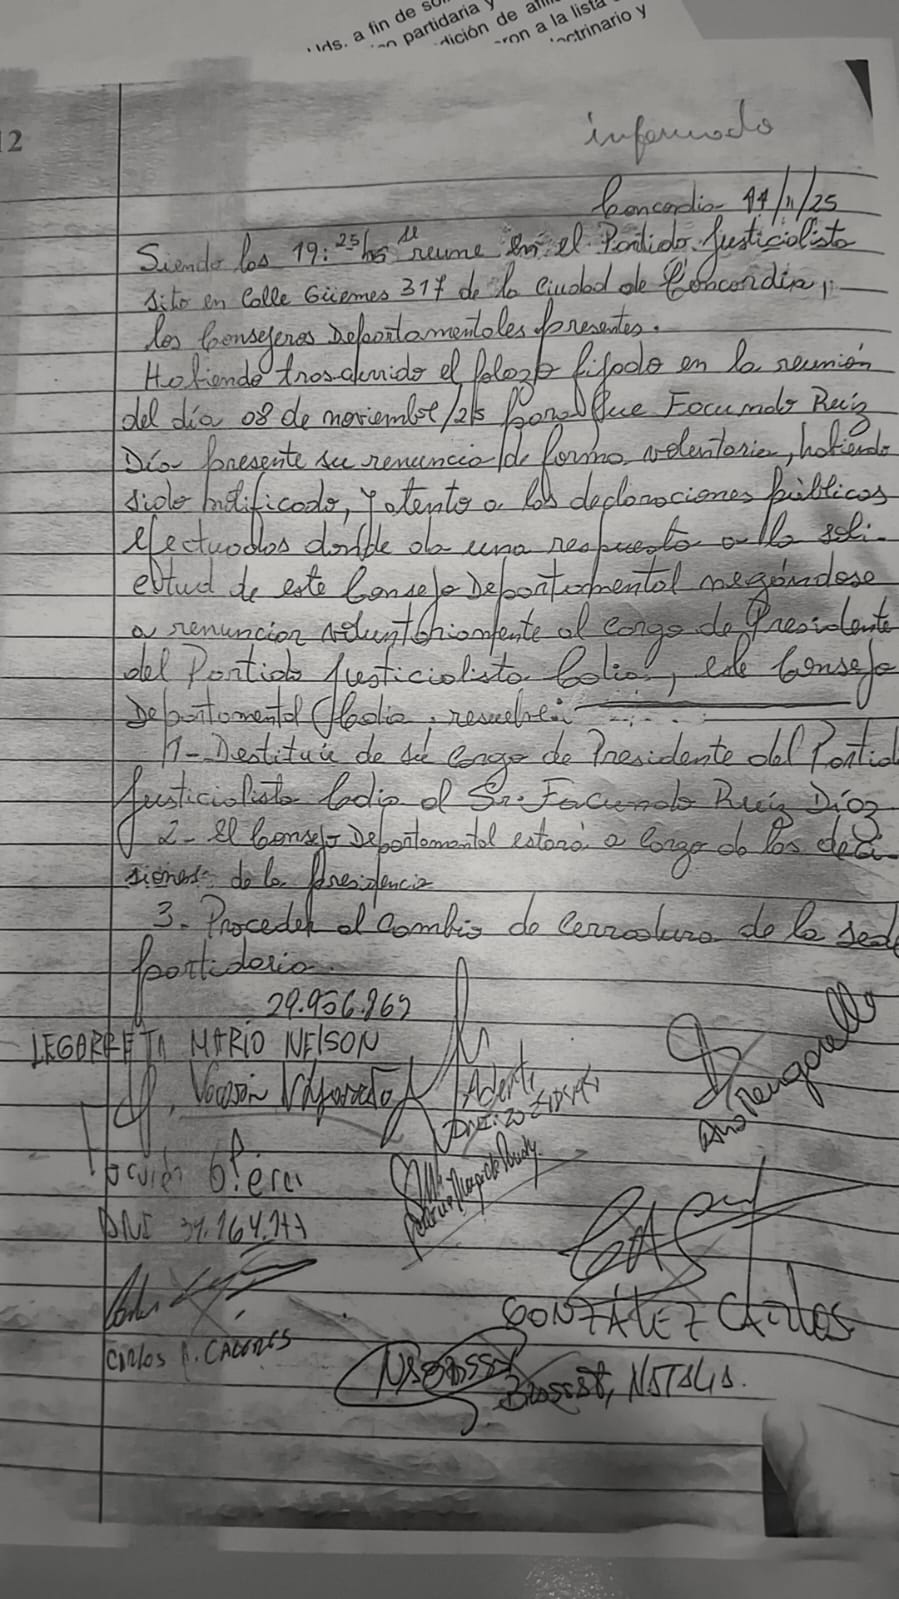 Uds. a fin de
partidaria y
dición de
ron a la lista
octrinario y
12
informado
Concordia 11/11/25
Siendo las 19:25 hs se reune en el Partido Justicialista
sito en Calle Güemes 317 de la Ciudad de Concordia,
los Consejeros Departamentales presentes.
Habiendo trascurrido el plazo fijado en la reunión
del día 08 de noviembre/25 para que Facundo Ruiz
Día presente su renuncia de forma voluntaria, habiendo
sido notificado, y atento a las declaraciones públicas
efectuadas donde da una respuesta a la soli-
citud de este Consejo Departamental negándose
a renunciar voluntariamente al cargo de Presidente
del Partido Justicialista Cdia, este Consejo
Departamental Cdia, resuelve:
1- Destituir de su cargo de Presidente del Partid
Justicialista Cdia al Sr. Facundo Ruiz Díaz
2- El Consejo Departamental estará a cargo de las deci-
siones de la Presidencia
3. Proceder al cambio de cerradura de la sede
partidaria.
29.956.969
LEGARRETA MARIO NELSON
DNI
CARLOS A. CACERES
GONZÁLEZ CARLOS
Brossst, NATALIA.